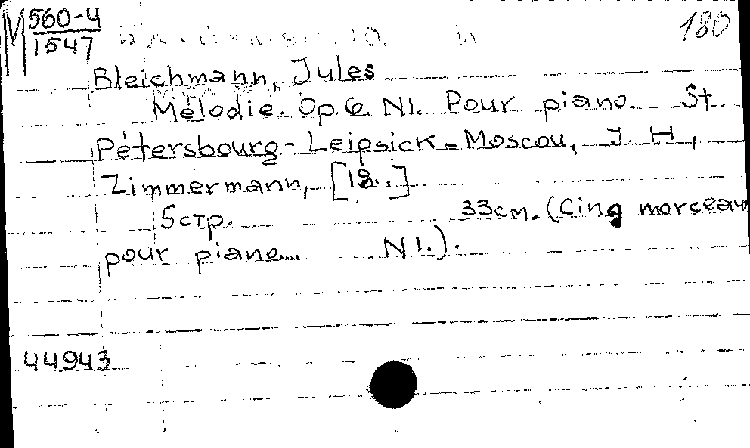 М 560-4 180
1547
Bleichmann, Jules
Mélodie. Op. 6. N1. Pour piano. St.
Pétersbourg-Leipsick-Moscou, J. H.
Zimmermann, [18..]
5 стр. 33 см. (Cinq morceau
pour piano... N1.).
44943